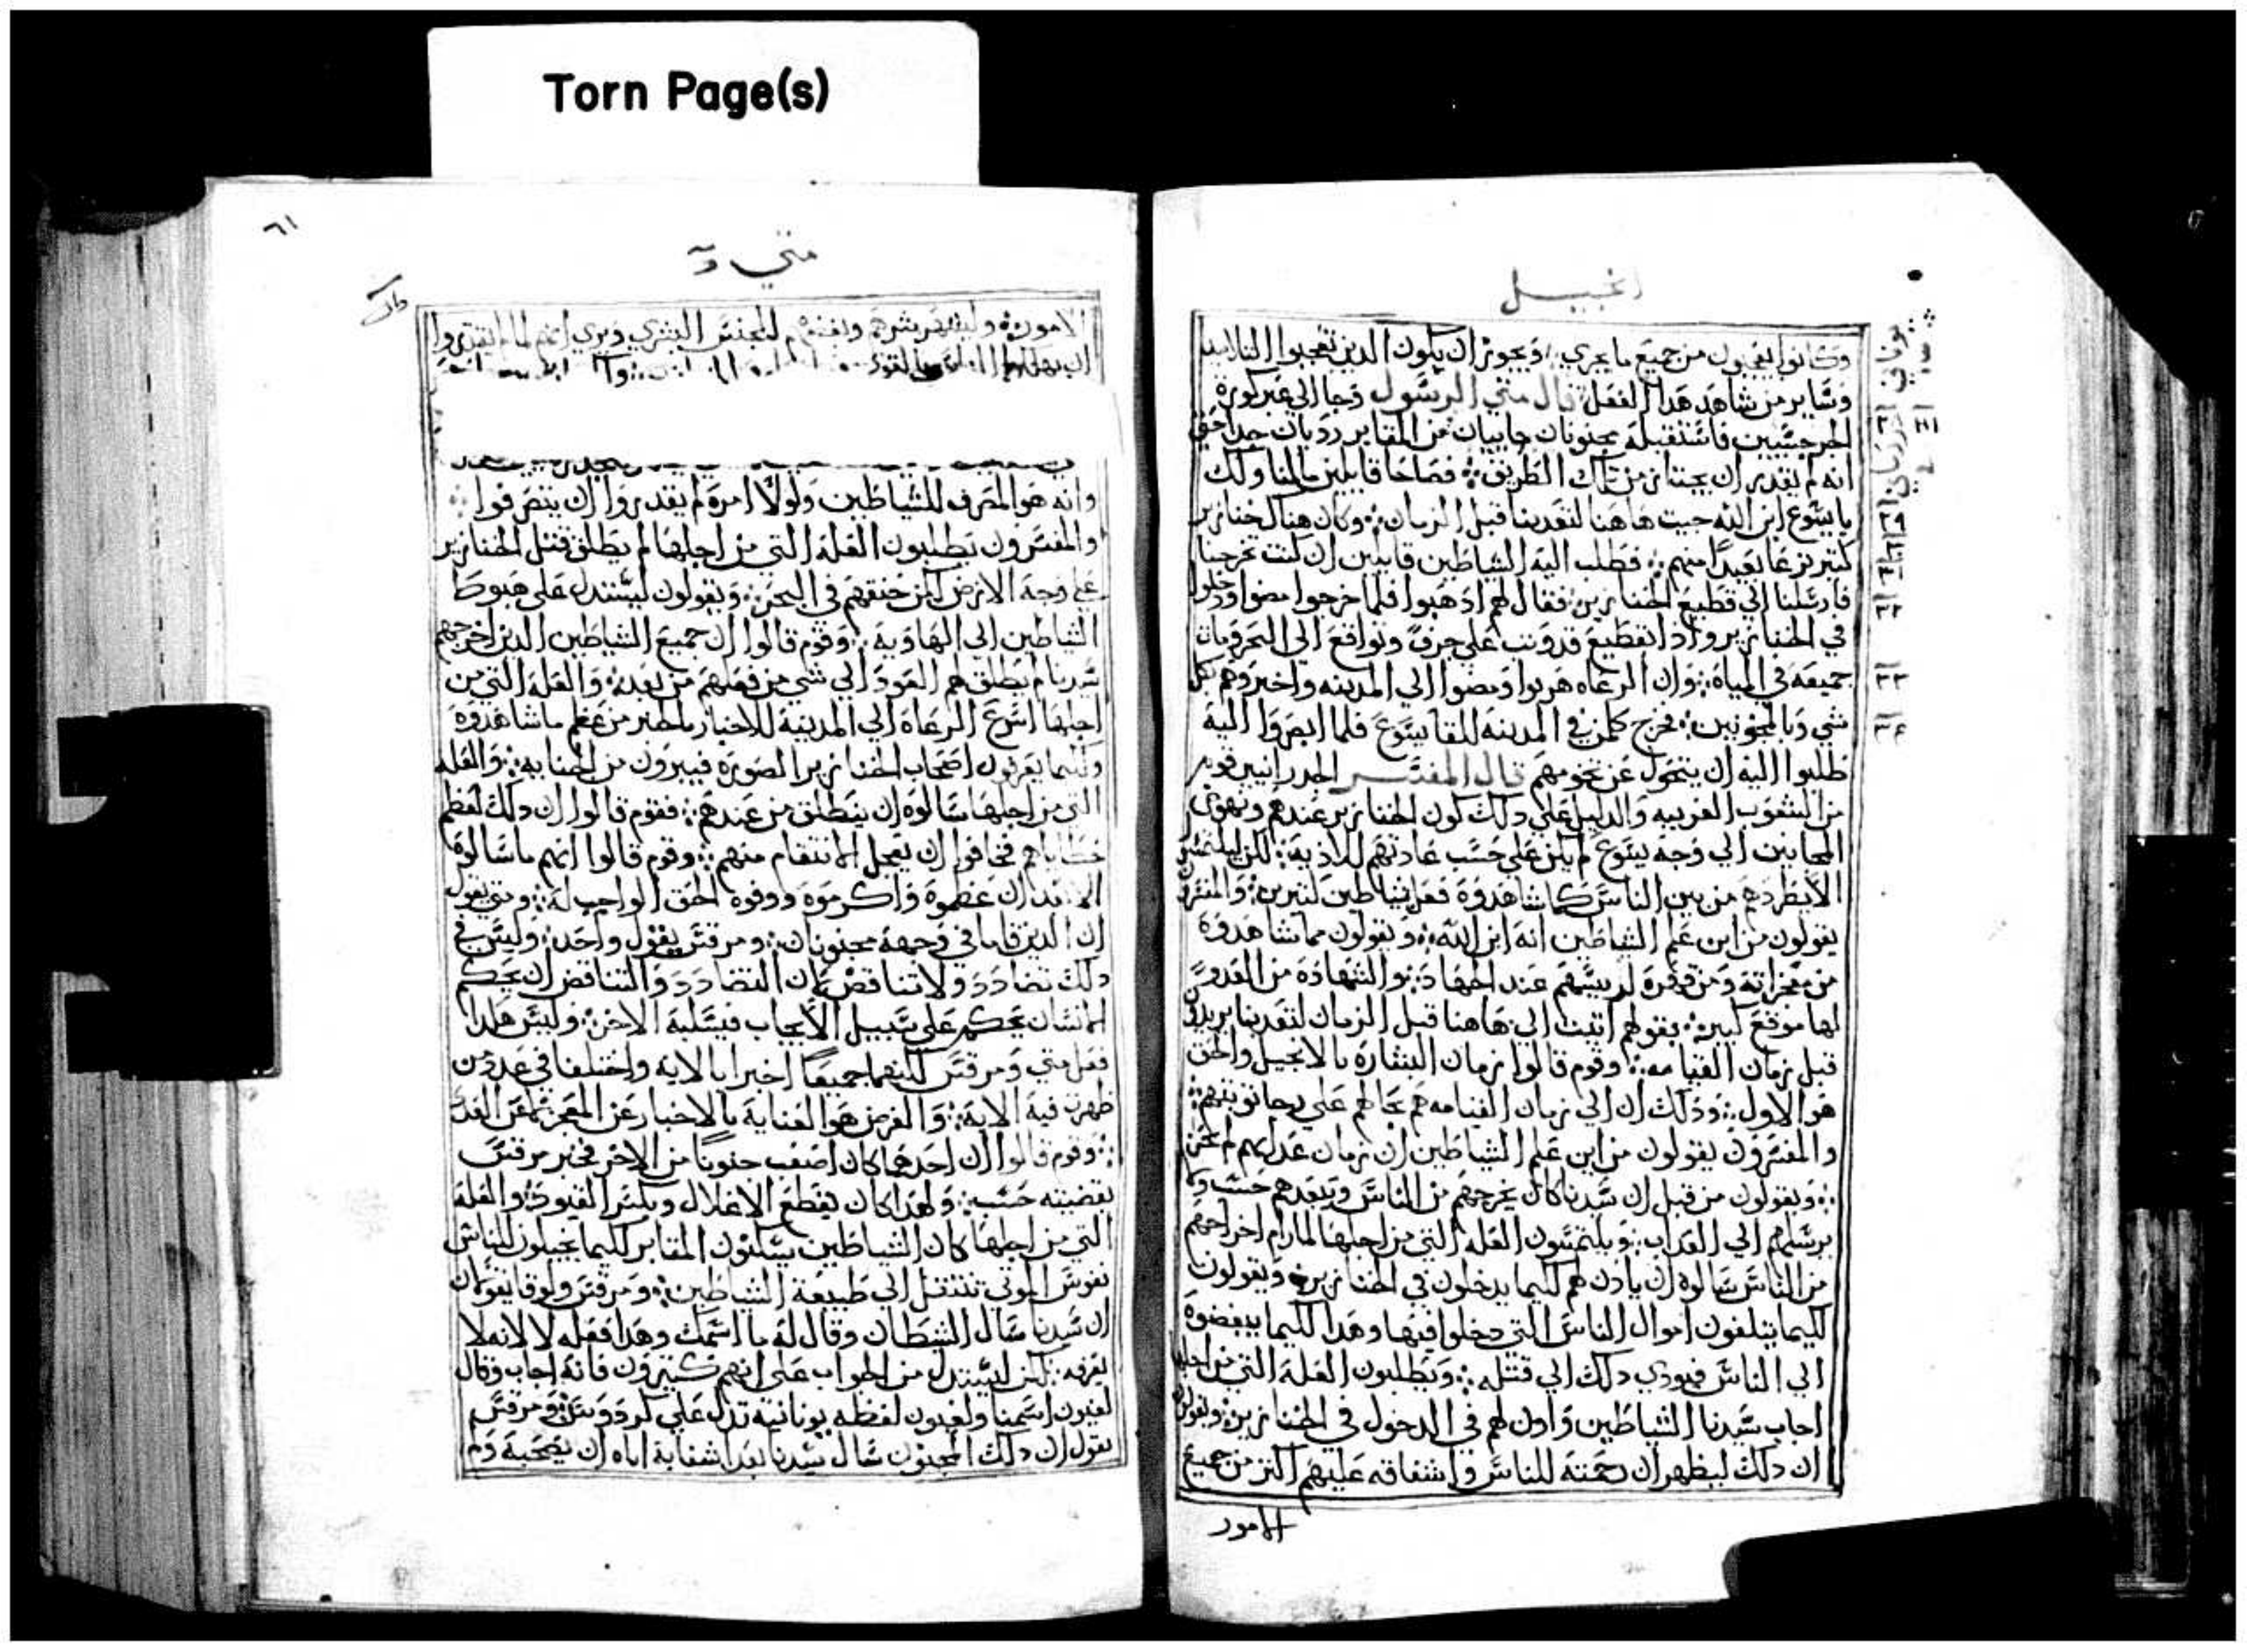 Torn Page(s)
انجيل
وكانوا يتعجبون من جميع ما يجري؞ ويجوز ان يكون الدين تعجبوا التلاميد
وساير من شاهد هدا الفعل قال متي الرسول وجا الي عبر كورة
الجرجسيين فاستقبله مجنونان جاييان من المقابر رديان جدا حتي
انه لم يقدر ان يجتاز من تلك الطريق؞ فصاحا قايلين مالنا ولك
يايسوع ابن الله جيت هاهنا لتعدبنا قبل الزمان؞ وكان هناك خنازير
كتير ترعا بعيدًا منهم؞ فطلب اليه الشياطين قايلين ان كنت تخرجنا
فارسلنا الي قطيع الخنازير؞ فقال لهم ادهبوا فلما خرجوا مضوا ودخلوا
في الخنازير وادا بقطيع قد وتب علي جرف وتواقع الي البحر ومات
جميعه في المياه؞ وان الرعاه هربوا ومضوا الي المدينه واخبروهم بكل
شي وبالمجنونين؞ فخرج كلمن في المدينه للقا يسوع فلما ابصروا اليه
طلبوا اليه ان يتحول عن تخومهم قال المفسر الجدرانيين قوم
من الشعوب الغريبه والدليل علي دلك كون الخنازير عندهم وتهوي
المجانين الي وجه يسوع لم يكن علي حسب عادتهم للادية؞ لكن ليلتمس
الا يطردهم من بين الناس كما شاهدوه فعل بشياطين كتيرين؞ والمفسرون
يقولون من اين علم الشياطين انه ابن الله؞ ويقولون مما شاهدوه
من معجزاته ومن قهره لرييسهم عند الجهاد؞ والشهادة من العدو
لها موقع كبير؞ بقولهم اتيت الي هاهنا قبل الزمان لتعدبنا يريدون
قبل زمان القيامه؞ وقوم قالوا زمان البشارة بالانجيل والحق
هو الاول؞ ودلك ان الي زمان القيامه هم بحالهم علي رجا توبتهم؞
والمفسرون يقولون من اين علم الشياطين ان زمان عدابهم لم يحن
؞ ويقولون من قبل ان سيدنا كان يخرجهم من الناس ويبعدهم حسب ولم
يرسلهم الي العداب؞ ويلتمسون العله التي من اجلها لما رام اخراجهم
من الناس سالوه ان يادن لهم كيما يدخلون في الخنازير؞ ويقولون
لكيما يتلفون اموال الناس التي دخلوا فيها وهدا لكيما يبغضوه
الي الناس فيودي دلك الي قتله؞ ويطلبون العله التي من اجلها
اجاب سيدنا الشياطين وادن لهم في الدخول في الخنازير؞ ويقولون
ان دلك ليظهر ان رحمته للناس واشفاقه عليهم اكتر من جميع
الامور
٢٨
٢٩
٣١
٣٢
٣٣
٣٤
٦١
متي
الامور؞ وليظهر شرهم وبغضهم للجنس البشري ويري انهم لما لم يقدروا
وانه هو المصرف للشياطين ولولا امره لم يقدروا ان يتصرفوا؞
والمفسرون يطلبون العله التي من اجلها لم يطلق قتل الخنازير
علي وجه الارض لكن خنقهم في البحر؞ ويقولون ليستدل علي هبوط
الشياطين الي الهاوية؞ وقوم قالوا ان جميع الشياطين الدين اخرجهم
سيدنا لم يطلق لهم العود الي شي من فعلهم من بعد؞ والعله التي من
اجلها اسرع الرعاه الي المدينة للاخبار بالخبر من عظم ما شاهدوه
وكيما يعرفون اصحاب الخنازير الصورة فيبرون من الجنايه؞ والعله
التي من اجلها سالوه ان ينطلق من عندهم؞ فقوم قالوا ان دلك لعظم
خطاياهم فخافوا ان يعجل الانتقام منهم؞ وقوم قالوا انهم ما سالوه
الا بعد ان عظموه واكرموه ووفوه الحق الواجب له؞ ومتي يقول
ان الدين قاما في وجهه مجنونان؞ ومرقس يقول واحد؞ وليس في
دلك تضادد ولا تناقض لان التضادد والتناقض ان يحكم
الانسان بحكم علي سبيل الايجاب فيسلبه الاخر؞ وليس هكدا
فعل متي ومرقس لكنهما جميعًا اخبرا بالاية واختلفا في عدد من
ظهرت فيه الاية؞ والغرض هو العناية بالاخبار عن المعجز لا عن العدد
؞ وقوم قالوا ان احدهما كان اصعب جنونًا من الاخر فخبر مرقس
بقضيته حسب؞ ولهدا كان يقطع الاغلال ويكسر القيود؞ والعله
التي من اجلها كان الشياطين يسكنون المقابر لكيما يخيلون للناس
نفوس الموتي تنتقل الي طبيعة الشياطين؞ ومرقس ولوقا يقولان
ان سيدنا سال الشيطان وقال له ما اسمك وهدا فعله لا لانه لا
يعرفه؞ لكن ليستدل من الجواب علي انهم كتيرون فانه اجاب وقال
لغيون اسمنا ولغيون لفظه يونانية تدل علي كردوس؞ ومرقس
يقول ان دلك المجنون سال سيدنا بعد اشفايه اياه ان يصحبه ولم